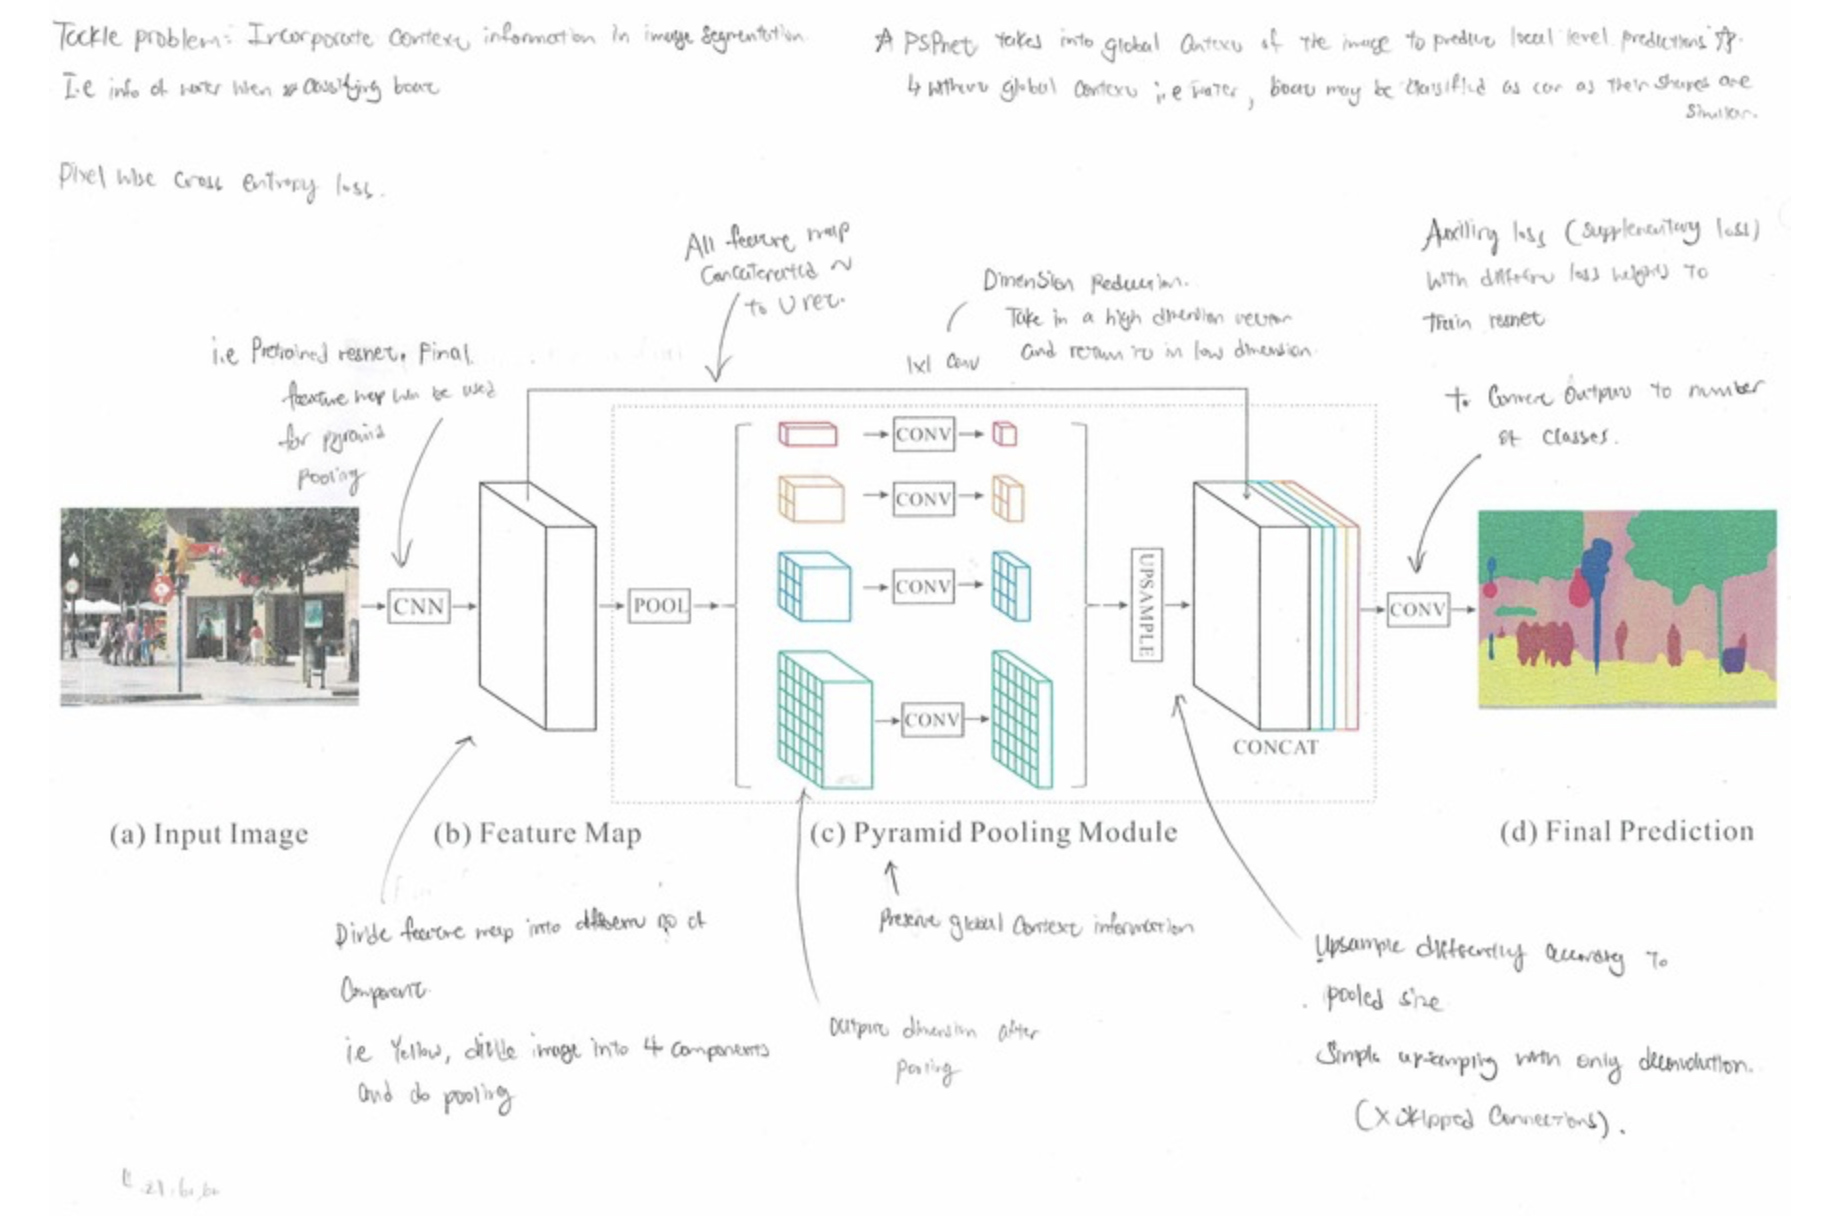 Tackle problem: Incorporate context information in image segmentation.
I.e info of water when classifying boat
☆ PSPnet takes into global context of the image to predict local level predictions ☆.
↳ without global context i.e water, boat may be classified as car as their shapes are
similar.
Pixel wise cross entropy loss.
All feature map
concatenated ~
to U net.
Dimension Reduction.
Take in a high dimension vector
and return it in low dimension.
1x1 conv
Auxiliry loss (supplementary loss)
with different loss weights to
train resnet
to convert outputs to number
of classes.
i.e Pretrained resnet. Final
feature map will be used
for pyramid
pooling
CNN
POOL
CONV
CONV
CONV
CONV
UPSAMPLE
CONCAT
CONV
(a) Input Image
(b) Feature Map
(c) Pyramid Pooling Module
(d) Final Prediction
Divide feature map into different no of
component.
i.e Yellow, divide image into 4 components
and do pooling
Preserve global context information
Output dimension after
pooling
Upsample differently according to
pooled size
Simple upsampling with only deconvolution.
(X skipped connections).